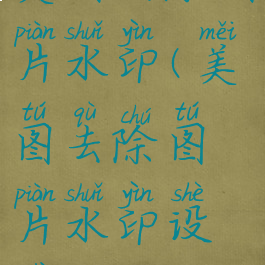 piàn shuǐ yìn měi
片水印(美
tú qù chú tú
图去除图
piàn shuǐ yìn shè
片水印设